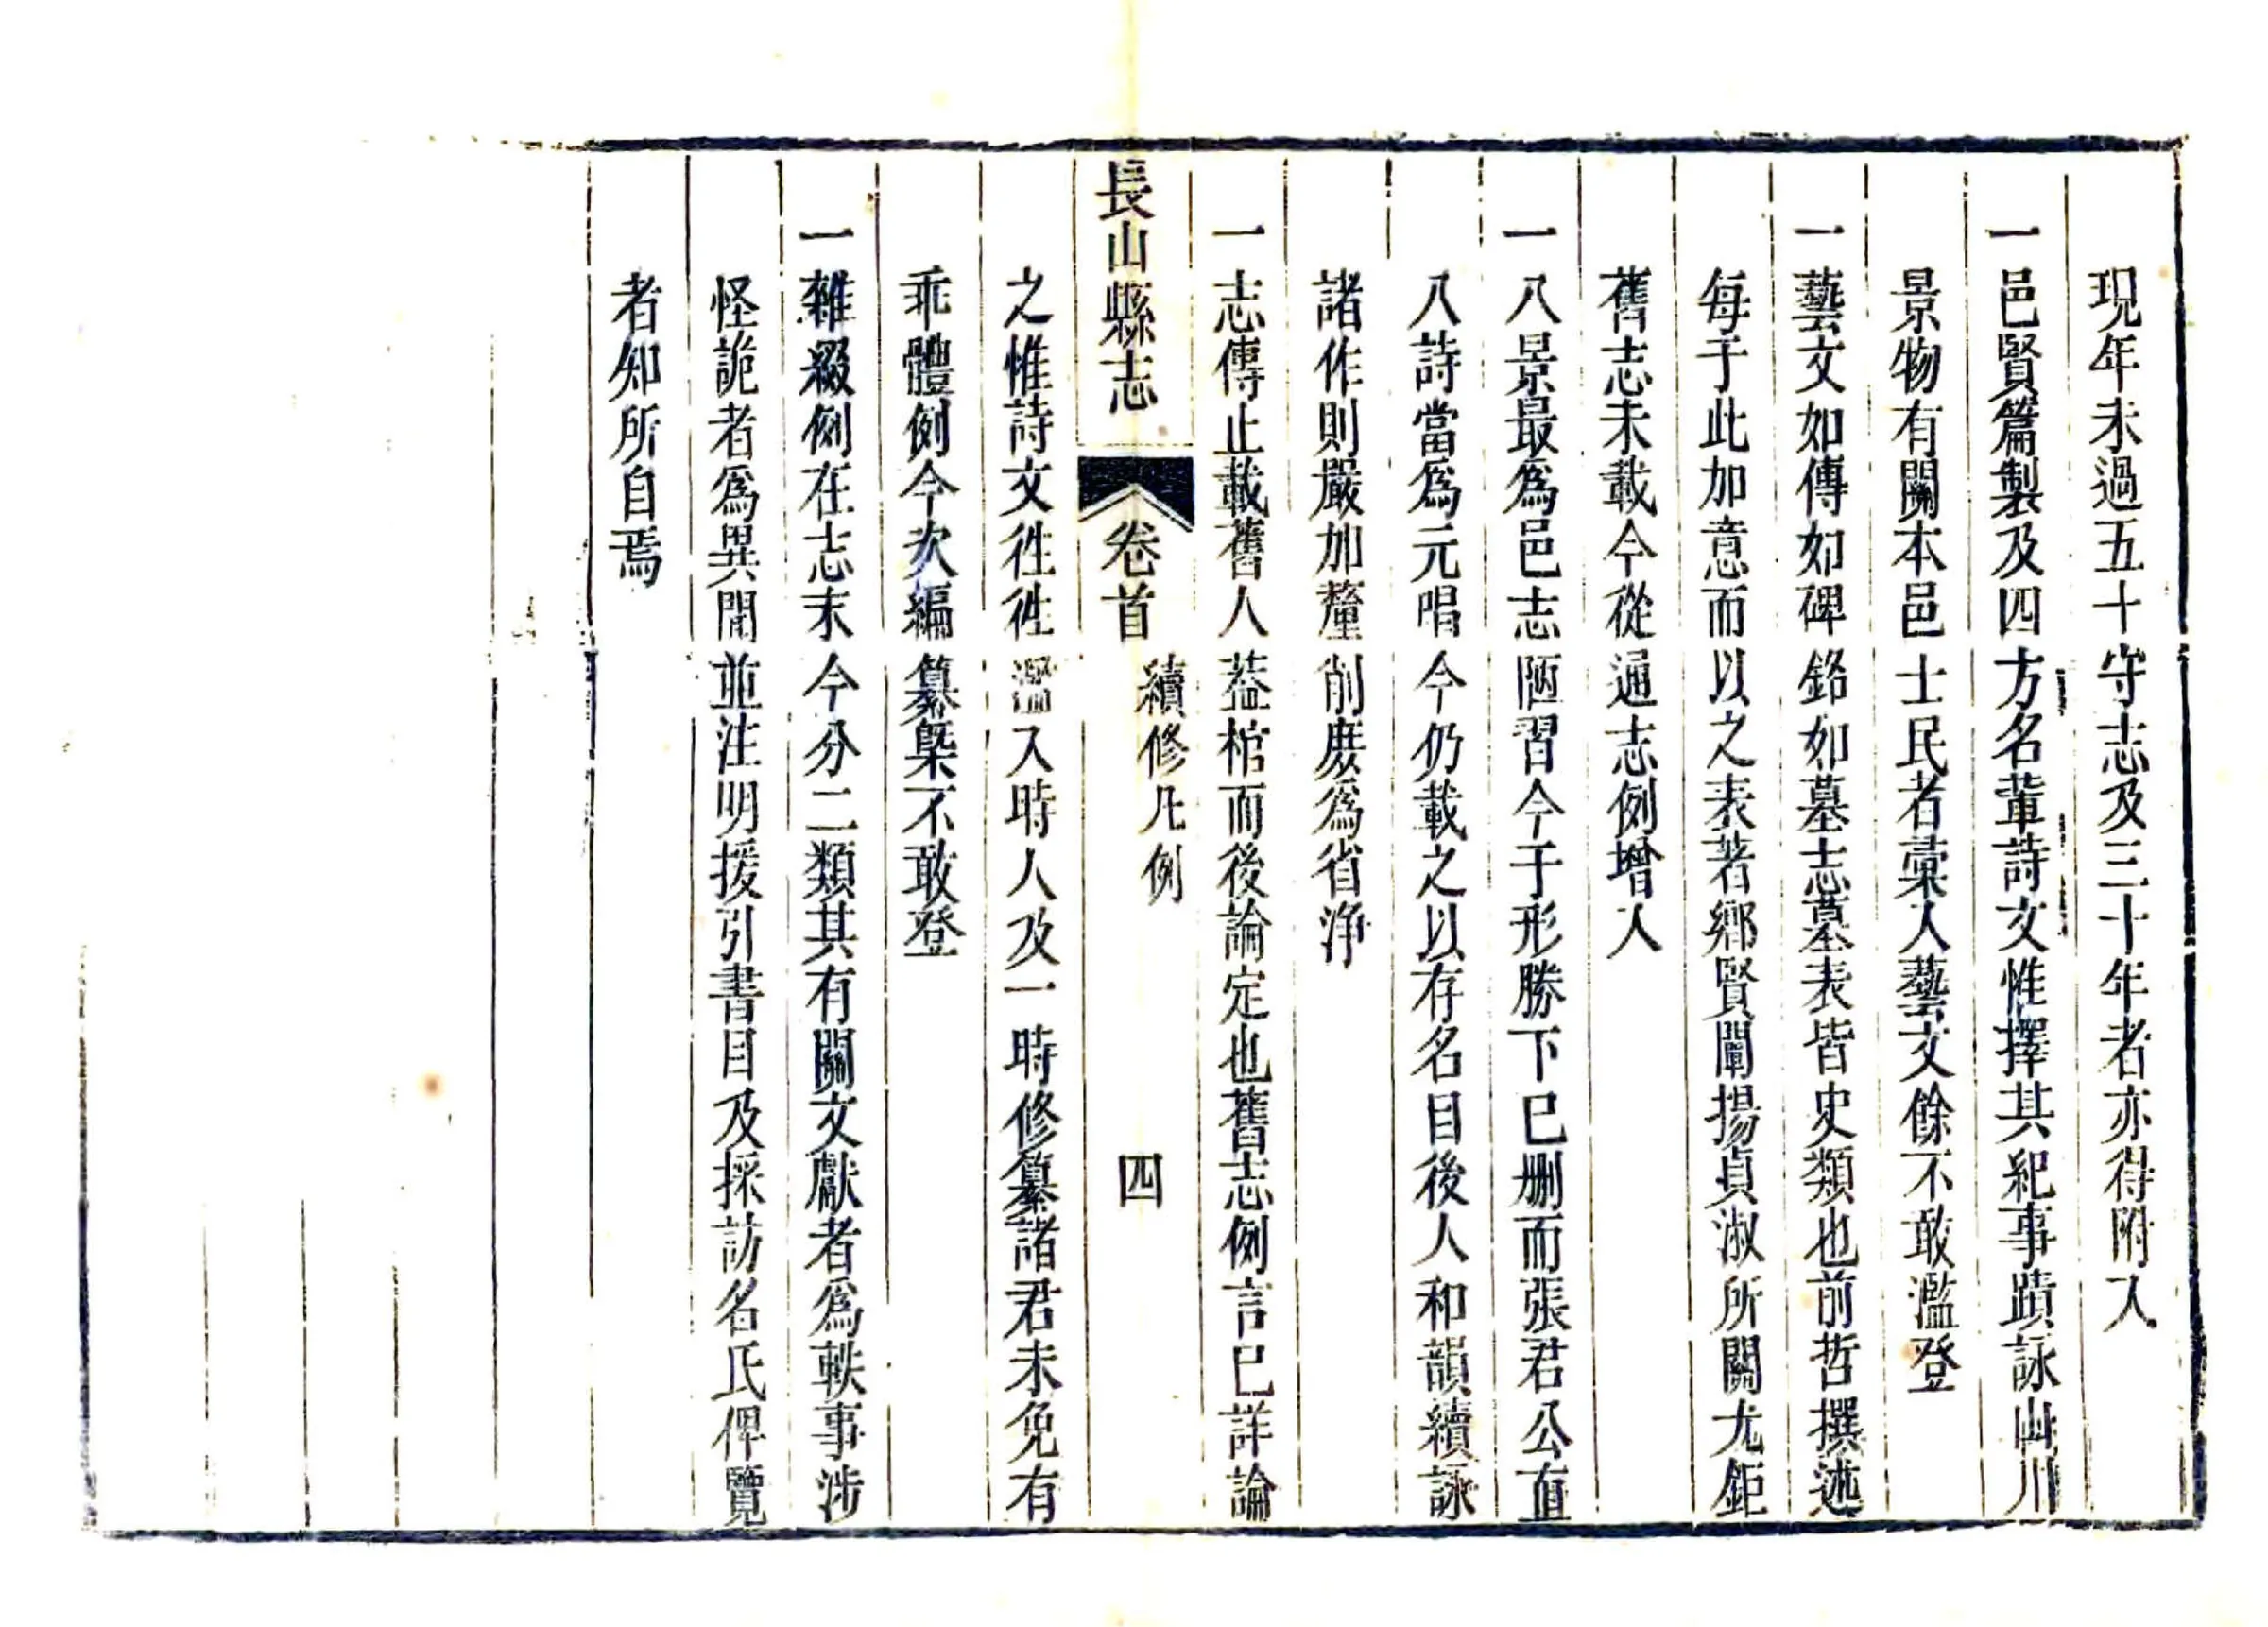 現年未過五十守志及三十年者亦得附入
一邑賢篇製及四方名輩詩文惟擇其紀事蹟詠山川
景物有關本邑士民者彚入藝文餘不敢濫登
一藝文如傳如碑銘如墓志墓表皆史類也前哲撰述
每于此加意而以之表著鄉賢闡揚貞淑所關尤鉅
舊志未載今從通志例增入
一八景最爲邑志陋習今于形勝下巳刪而張君公直
八詩當爲元唱今仍載之以存名目後人和韻續詠
諸作則嚴加釐削庻爲省浄
一志傳止載舊人葢棺而後論定也舊志例言巳詳論
長山縣志 卷首 續修凡例 四
之惟詩文徃徃濫入時人及一時修纂諸君未免有
乖體例今次編纂槩不敢登
一雜綴例在志末今分二類其有關文獻者爲軼事涉
怪詭者爲異聞並注明援引書目及採訪名氏俾覽
者知所自焉